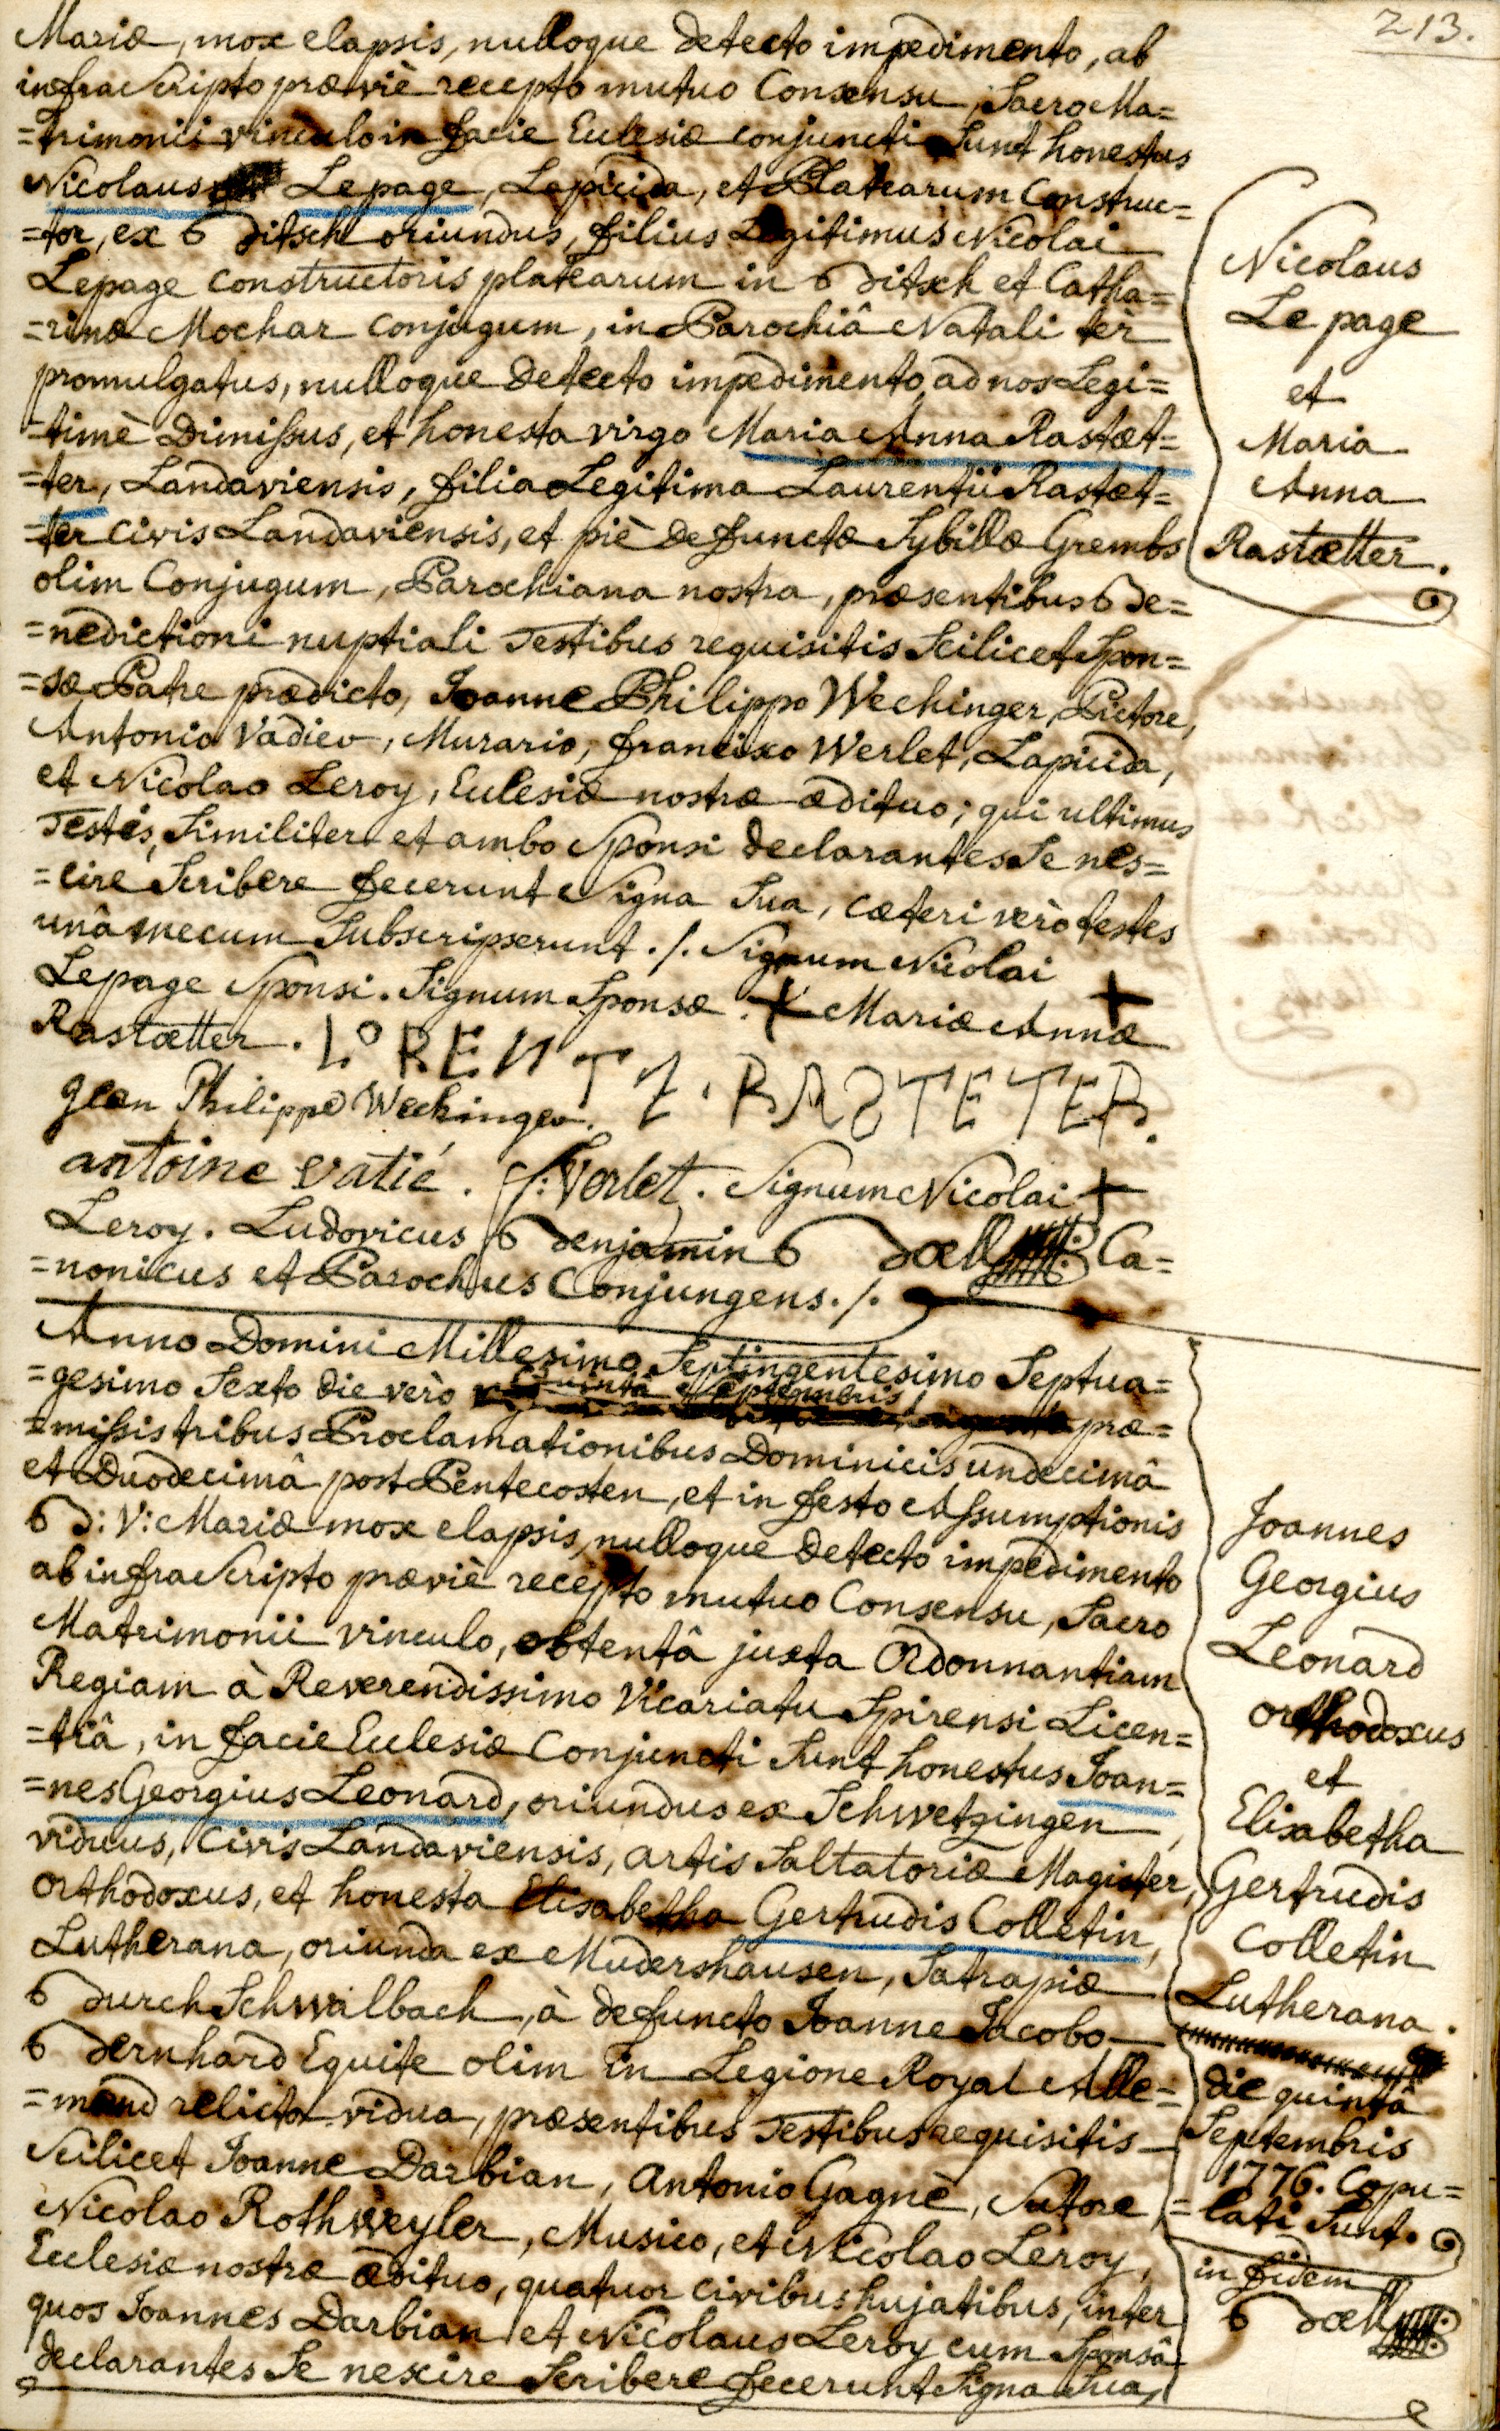 213.
Mariæ, mox elapsis, nulloque detecto impedimento, ab
infra Scripto præviè recepto mutuo Consensu, Sacro Ma=
=trimonii vinculo in facie Ecclesiæ conjuncti Sunt honestus
Nicolaus Lepage, Lapicida, et Platearum Construc=
=tor, ex Bitsch oriundus, filius Legitimus Nicolai
Lepage constructoris platearum in Bitsch et Catha=
=rinæ Mochar conjugum, in Parochiâ Natali tèr
promulgatus, nulloque detecto impedimento, ad nos Legi=
=timè Dimissus, et honesta virgo Maria Anna Rastæt=
=ter, Landaviensis, filia Legitima Laurentii Rastæt=
=ter civis Landaviensis, et piè defunctæ Sybillæ Grembs
olim Conjugum, Parochiana nostra, præsentibus be=
=nedictioni nuptiali Testibus requisitis Scilicet Spon=
=sæ Patre prædicto, Joanne Philippo Wechinger, Pictore,
Antonio Vadiev, Murario, francisco Werlet, Lapicida,
et Nicolao Leroy, Ecclesiæ nostræ ædituo; qui ultimus
Testis, Similiter et ambo Sponsi declarantes Se nes=
=cire Scribere fecerunt Signa Sua, cæteri verò testes
unâ mecum Subscripserunt ./. Signum Nicolai +
Lepage Sponsi. Signum Sponsæ + Mariæ Annæ
Rastætter. LORENTZ. RASTETER.
Jean Philippe Wechinger.
antoine vatié. f: Verlet. Signum Nicolai +
Leroy. Ludovicus Benjamin Bœll Ca=
=nonicus et Parochus Conjungens ./.
Nicolaus
Le page
et
Maria
Anna
Rastætter.
Anno Domini Millesimo Septingentesimo Septua=
=gesimo Sexto die verò Quintâ Septembris, præ=
=missis tribus Proclamationibus Dominicis undecimâ
et Duodecimâ post Pentecosten, et in festo Assumptionis
B: V: Mariæ mox elapsis, nulloque detecto impedimento
ab infra Scripto præviè recepto mutuo Consensu, Sacro
Matrimonii vinculo, obtentâ juxta Ordonnantiam
Regiam à Reverendissimo Vicariatu Spirensi Licen=
=tiâ, in facie Ecclesiæ Conjuncti Sunt honestus Joan=
=nes Georgius Leonard, oriundus ex Schwetzingen,
viduus, civis Landaviensis, artis Saltatoriæ Magister,
orthodoxus, et honesta Elisabetha Gertrudis Colletin,
Lutherana, oriunda ex Mudershausen, Satrapiæ
Burch Schwalbach, à defuncto Joanne Jacobo
Bernhard Equite olim in Legione Royal Alle=
=mand relicta vidua, præsentibus Testibus requisitis
Scilicet Joanne Darbian, Antonio Gagnè, Sutore,
Nicolao Rothweyler, Musico, et Nicolao Leroy,
Ecclesiæ nostræ ædituo, quatuor civibus hujatibus, inter
quos Joannes Darbian et Nicolaus Leroy cum Sponsâ
declarantes Se nescire Scribere fecerunt Signa Sua,
Joannes
Georgius
Leonard
orthodoxus
et
Elisabetha
Gertrudis
Colletin
Lutherana.
die quintâ
Septembris
1776. Copu=
=lati Sunt.
in fidem
Bœll